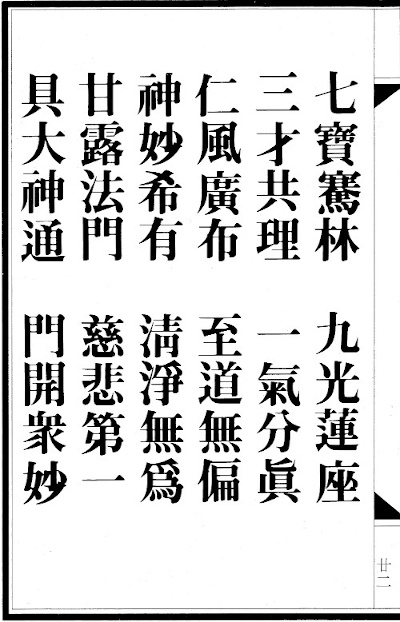 七寶騫林　九光蓮座
三才共理　一氣分眞
仁風廣布　至道無偏
神妙希有　淸淨無爲
甘露法門　慈悲第一
具大神通　門開衆妙
廿二